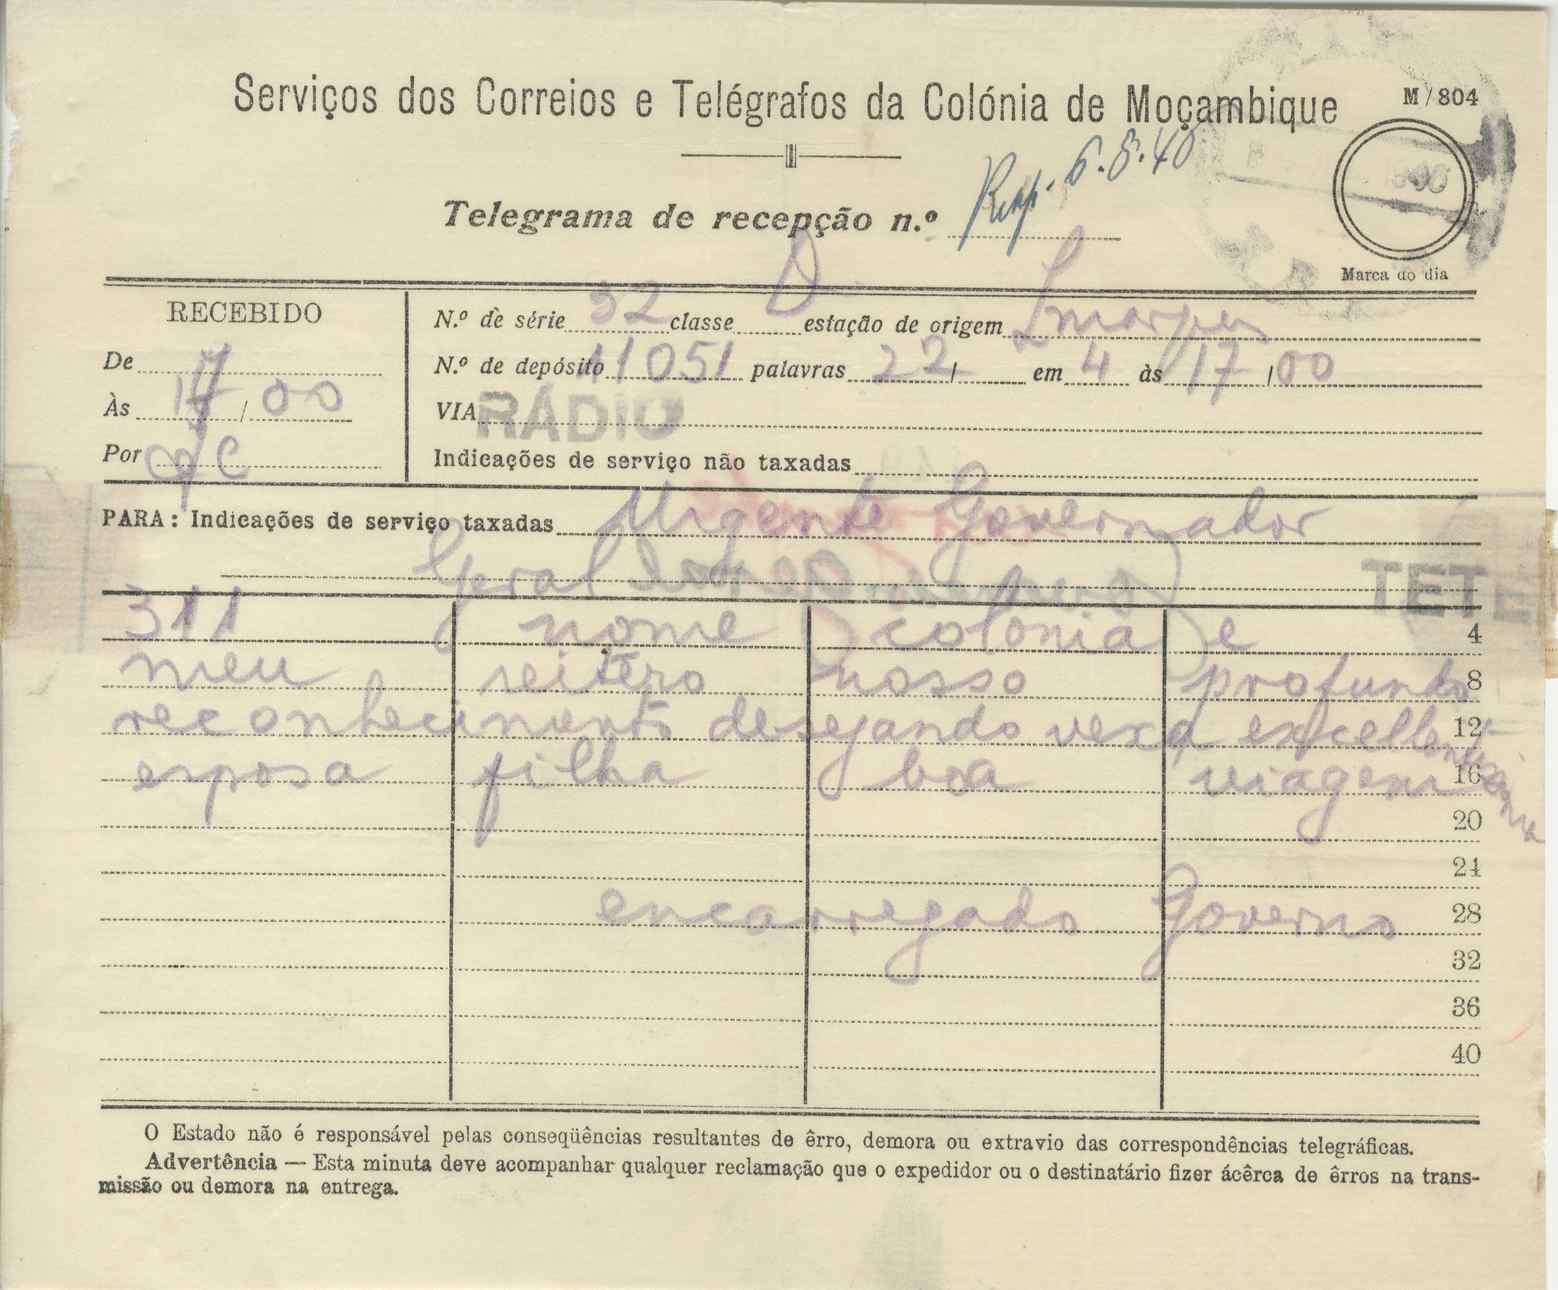 Serviços dos Correios e Telégrafos da Colónia de Moçambique
M/804
Telegrama de recepção n.º Resp. 6.8.40
Marca do dia
RECEBIDO
De
Às 17/00
Por
N.º de série 32 classe D estação de origem Lmarques
N.º de depósito 11051 palavras 22/ em 4 às 17/00
VIA RÁDIO
Indicações de serviço não taxadas
PARA: Indicações de serviço taxadas Urgente Governador
Geral
TETE
311 nome colonia e 4
meu reitero nosso profundo 8
reconhecimento desejando vexa excellentissima 12
esposa filha boa viagem 16
20
24
encarregado Governo 28
32
36
40
O Estado não é responsável pelas conseqüências resultantes de êrro, demora ou extravio das correspondências telegráficas.
Advertência — Esta minuta deve acompanhar qualquer reclamação que o expedidor ou o destinatário fizer ácêrca de êrros na trans-
missão ou demora na entrega.